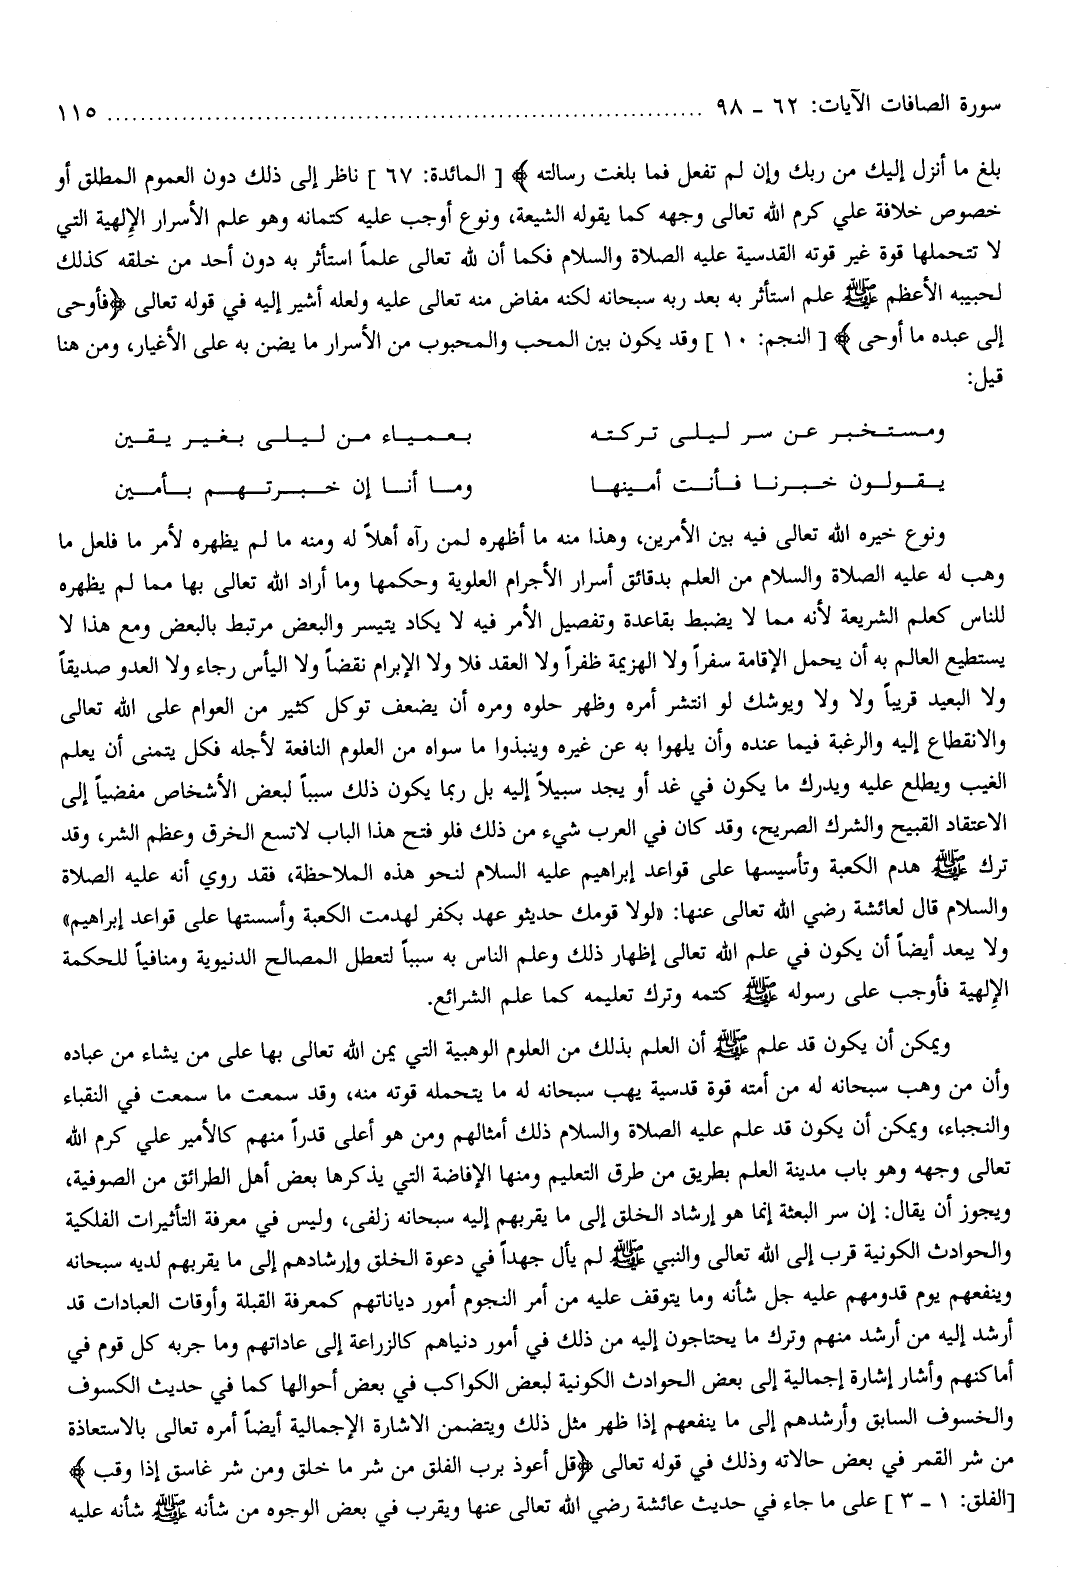 سورة الصافات الآيات: ٦٢ ـ ٩٨ ........................................................................ ١١٥
بلغ ما أنزل إليك من ربك وإن لم تفعل فما بلغت رسالته ﴾ [ المائدة: ٦٧ ] ناظر إلى ذلك دون العموم المطلق أو
خصوص خلافة علي كرم الله تعالى وجهه كما يقوله الشيعة، ونوع أوجب عليه كتمانه وهو علم الأسرار الإلهية التي
لا تتحملها قوة غير قوته القدسية عليه الصلاة والسلام فكما أن لله تعالى علماً استأثر به دون أحد من خلقه كذلك
لحبيبه الأعظم ﷺ علم استأثر به بعد ربه سبحانه لكنه مفاض منه تعالى عليه ولعله أشير إليه في قوله تعالى ﴿فأوحى
إلى عبده ما أوحى ﴾ [ النجم: ١٠ ] وقد يكون بين المحب والمحبوب من الأسرار ما يضن به على الأغيار، ومن هنا
قيل:
ومستخبر عن سر ليلى تركته بعمياء من ليلى بغير يقين
يقولون خبرنا فأنت أمينها وما أنا إن خبرتهم بأمين
ونوع خيره الله تعالى فيه بين الأمرين، وهذا منه ما أظهره لمن رآه أهلاً له ومنه ما لم يظهره لأمر ما فلعل ما
وهب له عليه الصلاة والسلام من العلم بدقائق أسرار الأجرام العلوية وحكمها وما أراد الله تعالى بها مما لم يظهره
للناس كعلم الشريعة لأنه مما لا يضبط بقاعدة وتفصيل الأمر فيه لا يكاد يتيسر والبعض مرتبط بالبعض ومع هذا لا
يستطيع العالم به أن يحمل الإقامة سفراً ولا الهزيمة ظفراً ولا العقد فلا ولا الإبرام نقضاً ولا اليأس رجاء ولا العدو صديقاً
ولا البعيد قريباً ولا ولا ويوشك لو انتشر أمره وظهر حلوه ومره أن يضعف توكل كثير من العوام على الله تعالى
والانقطاع إليه والرغبة فيما عنده وأن يلهوا به عن غيره وينبذوا ما سواه من العلوم النافعة لأجله فكل يتمنى أن يعلم
الغيب ويطلع عليه ويدرك ما يكون في غد أو يجد سبيلاً إليه بل ربما يكون ذلك سبباً لبعض الأشخاص مفضياً إلى
الاعتقاد القبيح والشرك الصريح، وقد كان في العرب شيء من ذلك فلو فتح هذا الباب لاتسع الخرق وعظم الشر، وقد
ترك ﷺ هدم الكعبة وتأسيسها على قواعد إبراهيم عليه السلام لنحو هذه الملاحظة، فقد روي أنه عليه الصلاة
والسلام قال لعائشة رضي الله تعالى عنها: «لولا قومك حديثو عهد بكفر لهدمت الكعبة وأسستها على قواعد إبراهيم»
ولا يبعد أيضاً أن يكون في علم الله تعالى إظهار ذلك وعلم الناس به سبباً لتعطل المصالح الدنيوية ومنافياً للحكمة
الإلهية فأوجب على رسوله ﷺ كتمه وترك تعليمه كما علم الشرائع.
ويمكن أن يكون قد علم ﷺ أن العلم بذلك من العلوم الوهبية التي يمن الله تعالى بها على من يشاء من عباده
وأن من وهب سبحانه له من أمته قوة قدسية يهب سبحانه له ما يتحمله قوته منه، وقد سمعت ما سمعت في النقباء
والنجباء، ويمكن أن يكون قد علم عليه الصلاة والسلام ذلك أمثالهم ومن هو أعلى قدراً منهم كالأمير علي كرم الله
تعالى وجهه وهو باب مدينة العلم بطريق من طرق التعليم ومنها الإفاضة التي يذكرها بعض أهل الطرائق من الصوفية،
ويجوز أن يقال: إن سر البعثة إنما هو إرشاد الخلق إلى ما يقربهم إليه سبحانه زلفى، وليس في معرفة التأثيرات الفلكية
والحوادث الكونية قرب إلى الله تعالى والنبي ﷺ لم يأل جهداً في دعوة الخلق وإرشادهم إلى ما يقربهم لديه سبحانه
وينفعهم يوم قدومهم عليه جل شأنه وما يتوقف عليه من أمر النجوم أمور دياناتهم كمعرفة القبلة وأوقات العبادات قد
أرشد إليه من أرشد منهم وترك ما يحتاجون إليه من ذلك في أمور دنياهم كالزراعة إلى عاداتهم وما جربه كل قوم في
أماكنهم وأشار إشارة إجمالية إلى بعض الحوادث الكونية لبعض الكواكب في بعض أحوالها كما في حديث الكسوف
والخسوف السابق وأرشدهم إلى ما ينفعهم إذا ظهر مثل ذلك ويتضمن الاشارة الإجمالية أيضاً أمره تعالى بالاستعاذة
من شر القمر في بعض حالاته وذلك في قوله تعالى ﴿قل أعوذ برب الفلق من شر ما خلق ومن شر غاسق إذا وقب ﴾
[الفلق: ١ ـ ٣ ] على ما جاء في حديث عائشة رضي الله تعالى عنها ويقرب في بعض الوجوه من شأنه ﷺ شأنه عليه